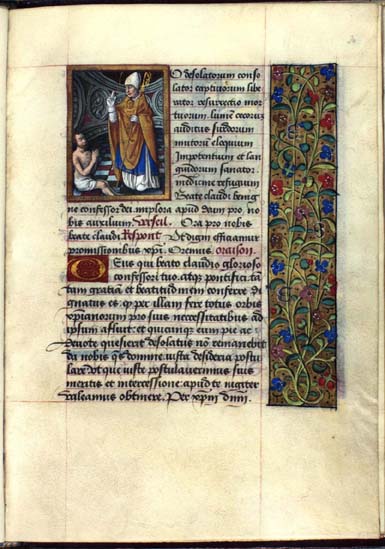 O desolatorum conso
lator captiuorum libe
rator resurrectio mor
tuorum lumen cecorum
auditus surdorum
mutorum eloquium
Impotentium et lan
guidorum sanator
medicine refugium
Beate claudi benig
ne confessor dei implora apud deum pro no
bis auxilium. Verseil. Ora pro nobis
beate claudi. Respont. Ut digni efficiamur
promissionibus xpi. Oremus oraison.
Deus qui beato claudio glorioso
confessori tuo atqz pontifici. ta
tam gratiam et beatitudinem conferre di
gnatus es qz per illam fere totus orbis
xpianorum pro suis necessitatibus ad
ipsum affluit. et quicunque eum pie ac
deuote quesierit desolatus non remanebit
da nobis qs domine iusta desideria postu
lare Ut que iuste postulauerimus suis
meritis et intercessione apud te iugiter
valeamus obtinere. Per xpm dnm.